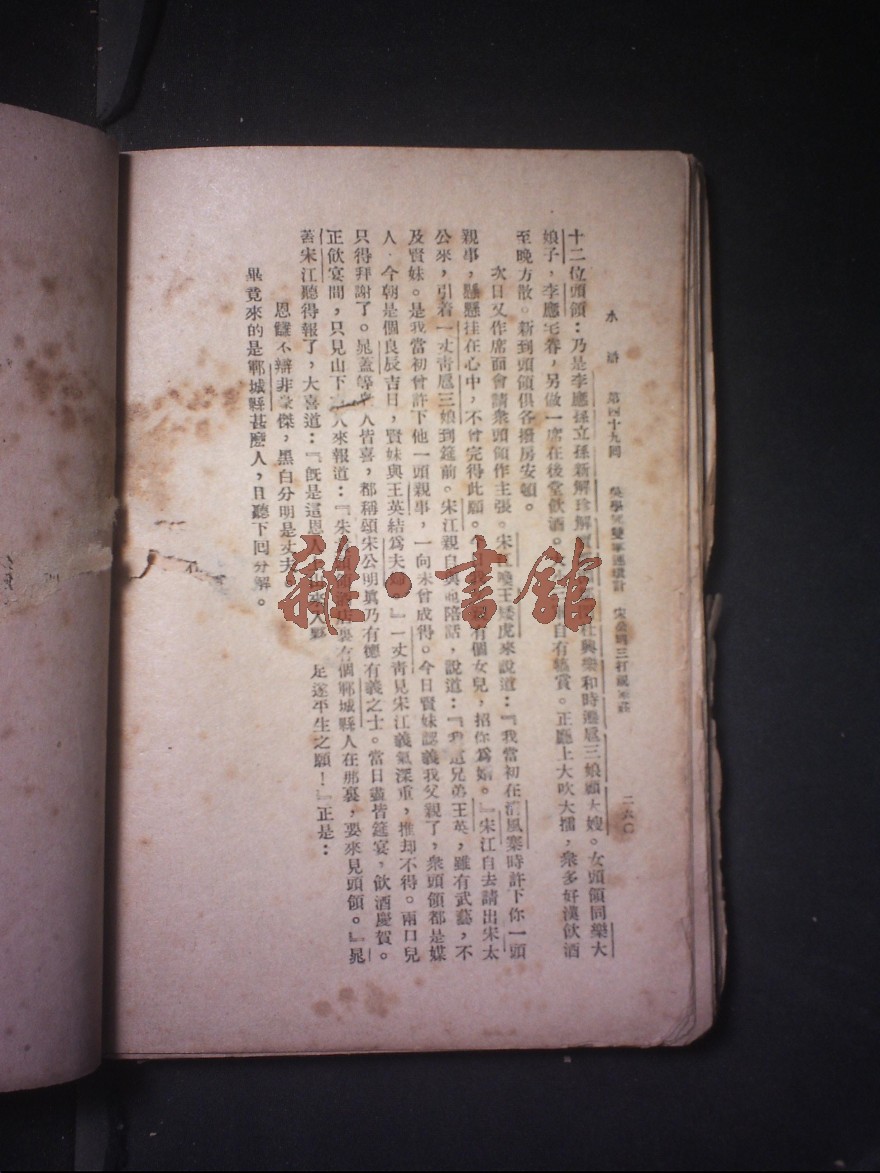 水滸 第四十九回 吳學究雙掌連環計 宋公明三打祝家莊 二六〇
十二位頭領：乃是李應孫立孫新解珍解寶 杜興樂和時遷扈三娘顧大嫂。女頭領同樂大
娘子，李應宅眷，另做一席在後堂飲酒。 自有犒賞。正廳上大吹大擂，衆多好漢飲酒
至晚方散。新到頭領俱各撥房安頓。
次日又作席面會請衆頭領作主張。宋江喚王矮虎來說道：『我當初在清風寨時許下你一頭
親事，懸懸挂在心中，不曾完得此願。今日我 有個女兒，招你爲婿。』宋江自去請出宋太
公來，引着一丈靑扈三娘到筵前。宋江親自與他陪話，說道：『我這兄弟王英，雖有武藝，不
及賢妹。是我當初曾許下他一頭親事，一向未曾成得。今日賢妹認義我父親了，衆頭領都是媒
人，今朝是個良辰吉日，賢妹與王英結爲夫婦。』一丈靑見宋江義氣深重，推却不得。兩口兒
只得拜謝了。晁蓋等衆人皆喜，都稱頌宋公明眞乃有德有義之士。當日盡皆筵宴，飲酒慶賀。
正飲宴間，只見山下 人來報道：『朱 頭領酒店裏有個鄆城縣人在那裏，要來見頭領。』晁
蓋宋江聽得報了，大喜道：『旣是這恩人上山來入夥 足遂平生之願！』正是：
恩讎不辯非豪傑，黑白分明是丈夫。
畢竟來的是鄆城縣甚麽人，且聽下回分解。
雜·書館